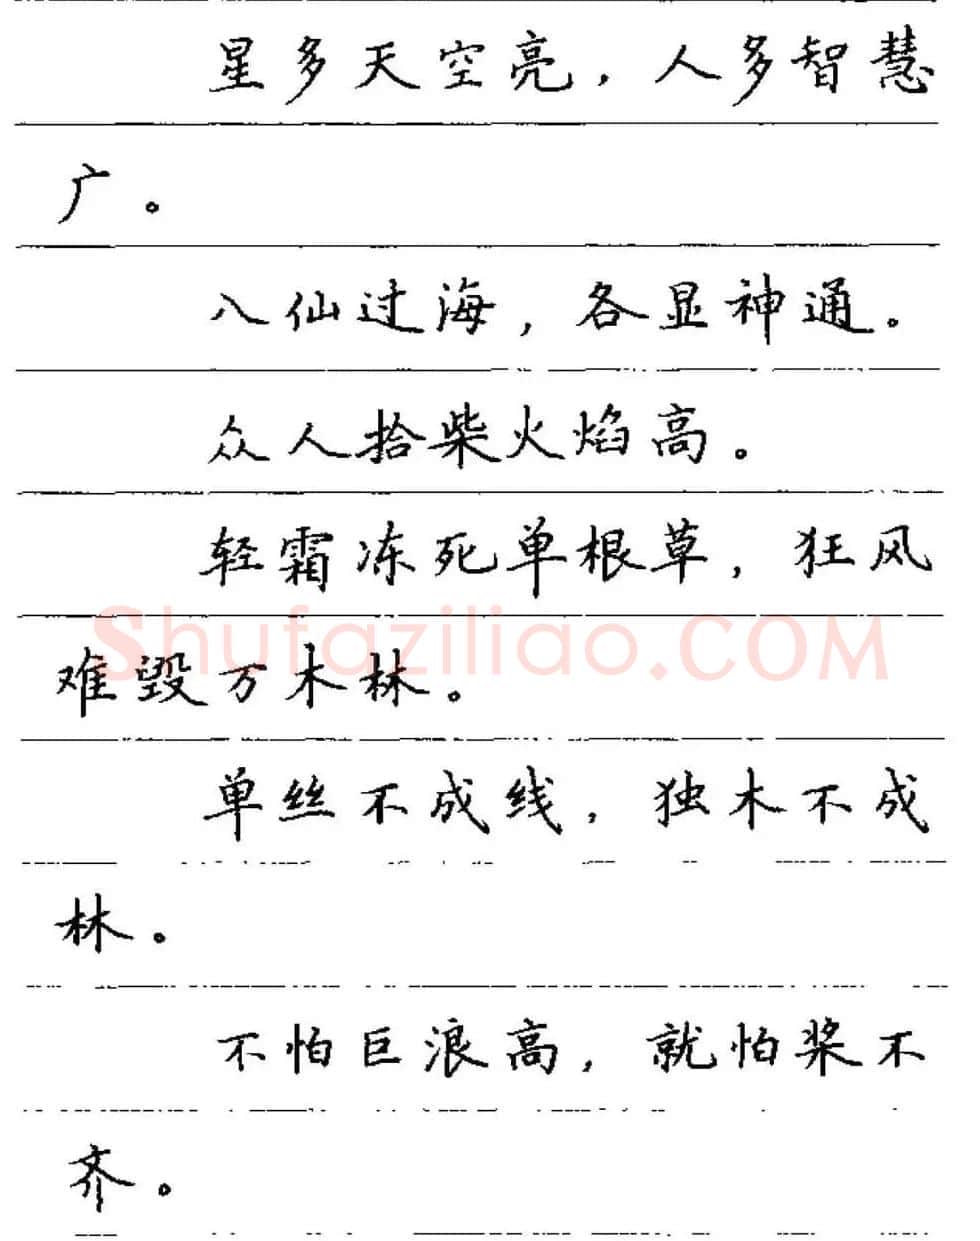 星多天空亮，人多智慧
广。
八仙过海，各显神通。
众人拾柴火焰高。
轻霜冻死单根草，狂风
Shufaziliao.COM
难毁万木林。
单丝不成线，独木不成
林。
不怕巨浪高，就怕桨不
齐。